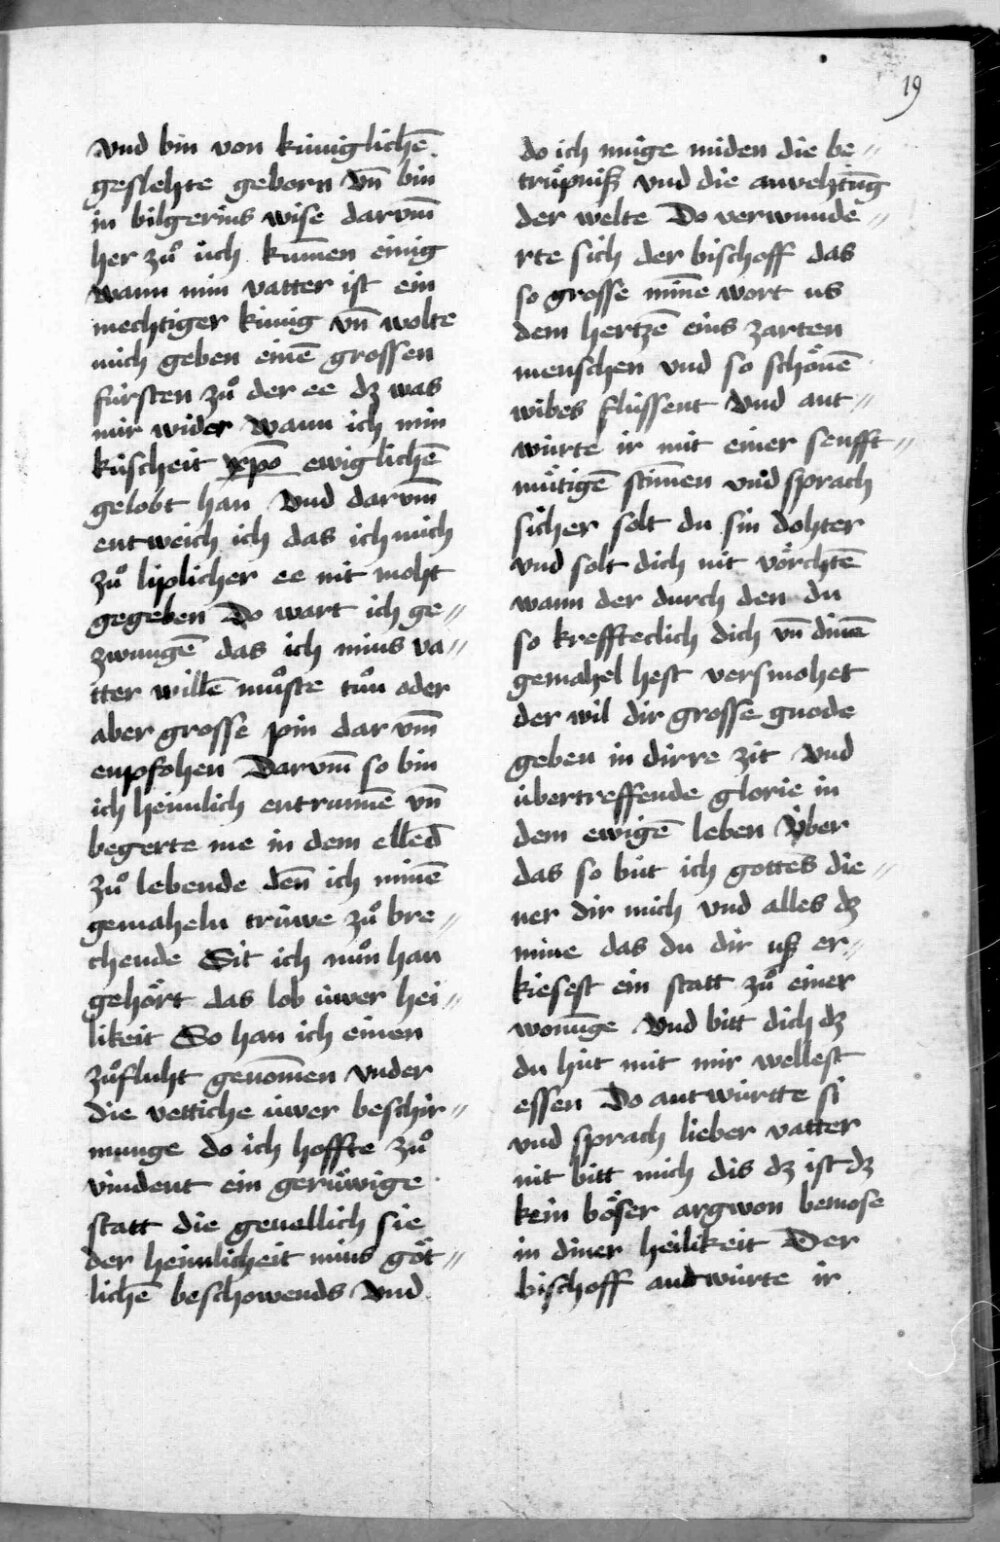 19
vnd bin von küniglichē
geslehte geborn vn̄ bin
in bilgerins wise darvm̄
her zuͦ üch kum̄en einig
wann min vatter ist ein
mechtiger künig vn̄ wolte
mich geben einē grossen
fürsten zuͦ der ee dz was
mir wider wann ich min
küscheit xp̄o ewiglichē
gelobt han Vnd darvm̄
entweich ich das ich mich
zuͦ liplicher ee nit moht
gegeben Do wart ich ge〃
zwungē das ich mins va〃
tter willē muͦste tuͦn oder
aber grosse pin darvm̄
enpfohen Darvm̄ so bin
ich heimlich entrunnē vn̄
begerte me in dem ellēd
zuͦ lebende den̄ ich minē
gemaheln trüwe zuͦ bre〃
chende Sit ich nuͦn han
gehört das lob üwer hei〃
likeit So han ich einen
zuͦfluht genom̄en vnder
die vettiche üwer beschir〃
munge do ich hoffte zuͦ
vindent ein gerüwige
statt die geuellich sie
der heimlicheit mins göt〃
lichē beschowends Vnd
do ich müge miden die be〃
trüpniß vnd die anvehtūg
der welte Do verwunde〃
rte sich der bischoff das
so grosse min̄e wort us
dem hertzē eins zarten
menschen vnd so schönē
wibes flüssent Vnd ant〃
würte ir mit einer senfft〃
mütigē stim̄en vnd sprach
sicher solt du sin dohter
vnd solt dich nit vörchtē
wann der durch den du
so kreffteclich dich vn̄ dinē
gemahel hest versmohet
der wil dir grosse gnode
geben in dirre zit Vnd
übertreffende glorie in
dem ewigē leben Vber
das so büt ich gottes die〃
ner dir mich vnd alles dz
mine das du dir uß er〃
kiesest ein statt zuͦ einer
wonūge Vnd bitt dich dz
du hüt mit mir wellest
essen Do antwürtte si
vnd sprach lieber vatter
nit bitt mich dis dz ist dz
kein böser argwon bemose
in diner heilikeit Der
bischoff antwürte ir